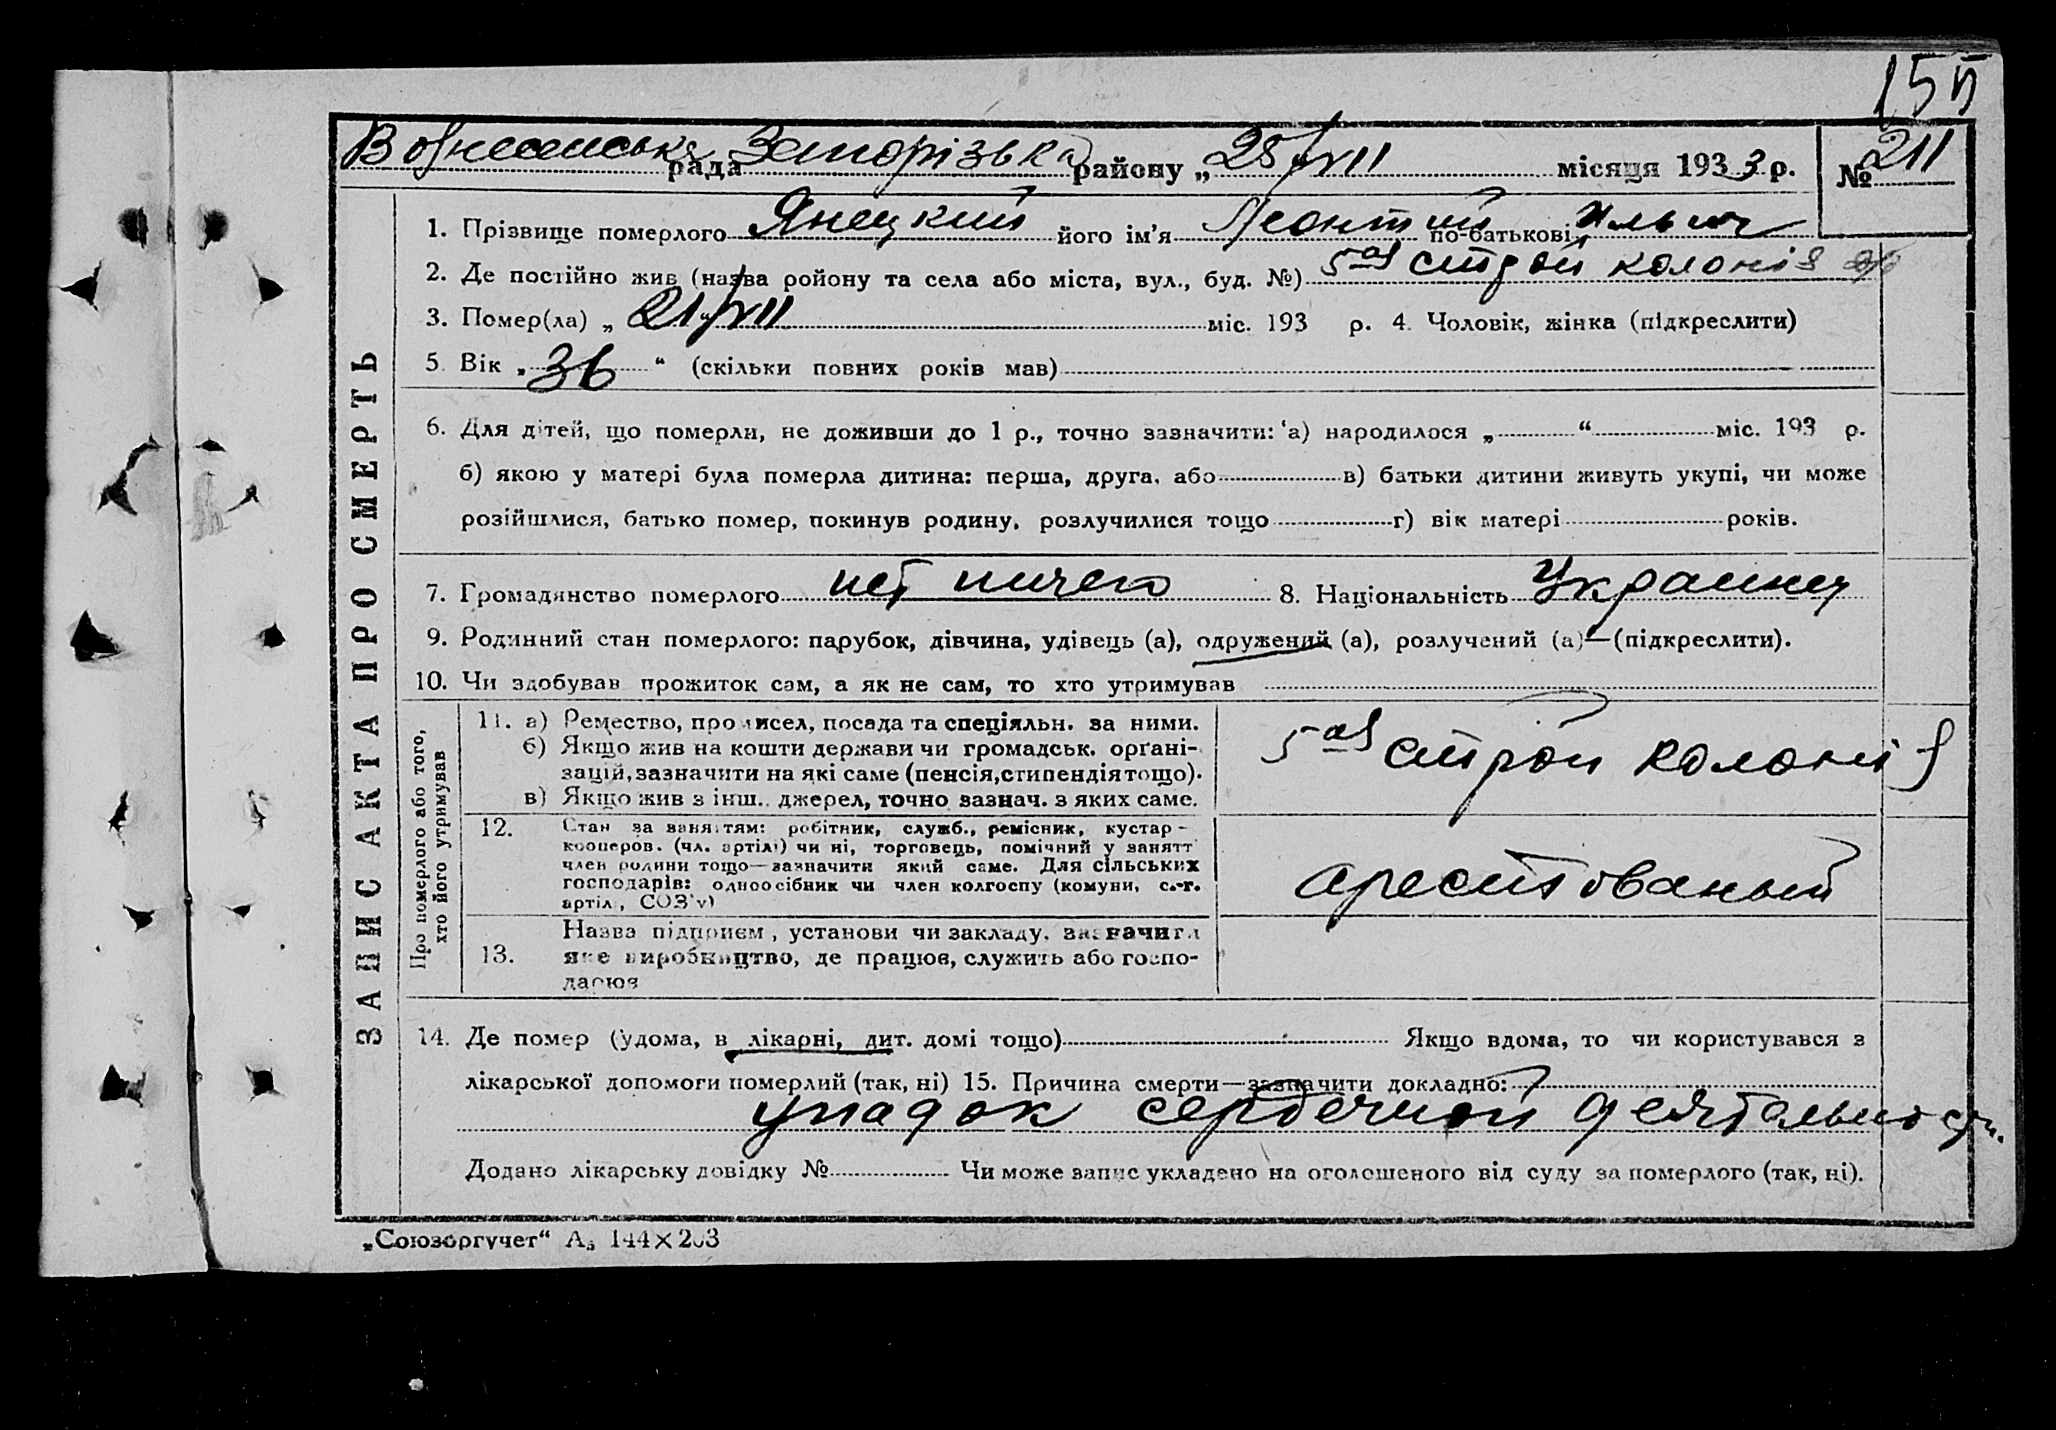 15
Вознесенська рада Запорізька району „25/VII місяця 1933 р. № 211
1. Прізвище померлого Янецкий його ім’я Леонтий по-батькові Ильич
2. Де постійно жив (назва ройону та села або міста, вул., буд. №) 5ая строй колонія
3. Помер(ла) „21“/VII міс. 193 р. 4. Чоловік, жінка (підкреслити)
5. Вік „36“ (скільки повних років мав)
6. Для дітей, що померли, не доживши до 1 р., точно зазначити: а) народилося „ “ міс. 193 р.
б) якою у матері була померла дитина: перша, друга, або в) батьки дитини живуть укупі, чи може
розійшлися, батько помер, покинув родину, розлучилися тощо г) вік матері років.
7. Громадянство померлого нет ничего 8. Національність Украинец
9. Родинний стан померлого: парубок, дівчина, удівець (а), одружений (а), розлучений (а)—(підкреслити).
10. Чи здобував прожиток сам, а як не сам, то хто утримував
ЗАПИС АКТА ПРО СМЕРТЬ
Про померлого або того,
хто його утримував
11. а) Ремество, промисел, посада та спеціяльн. за ними.
б) Якщо жив на кошти держави чи громадськ. орґані-
зацій, зазначити на які саме (пенсія, стипендія тощо).
в) Якщо жив з інш. джерел, точно зазнач. з яких саме.
5ая строй колонія
12. Стан за заняттям: робітник, служб., ремісник, кустар-
кооперов. (чл. артілі) чи ні, торговець, помічний у занятт
член родини тощо—зазначити який саме. Для сільських
господарів: одноосібник чи член колгоспу (комуни, с.-г.
артіл., СОЗ’у)
арестованый
13. Назва підприєм., установи чи закладу, зазначити
яке виробництво, де працює, служить або госпо-
дарює
14. Де помер (удома, в лікарні, дит. домі тощо) Якщо вдома, то чи користувався з
лікарської допомоги померлий (так, ні) 15. Причина смерти—зазначити докладно:
упадок сердечной деятельности.
Додано лікарську довідку № Чи може запис укладено на оголошеного від суду за померлого (так, ні).
„Союзоргучет“ А₅ 144×203